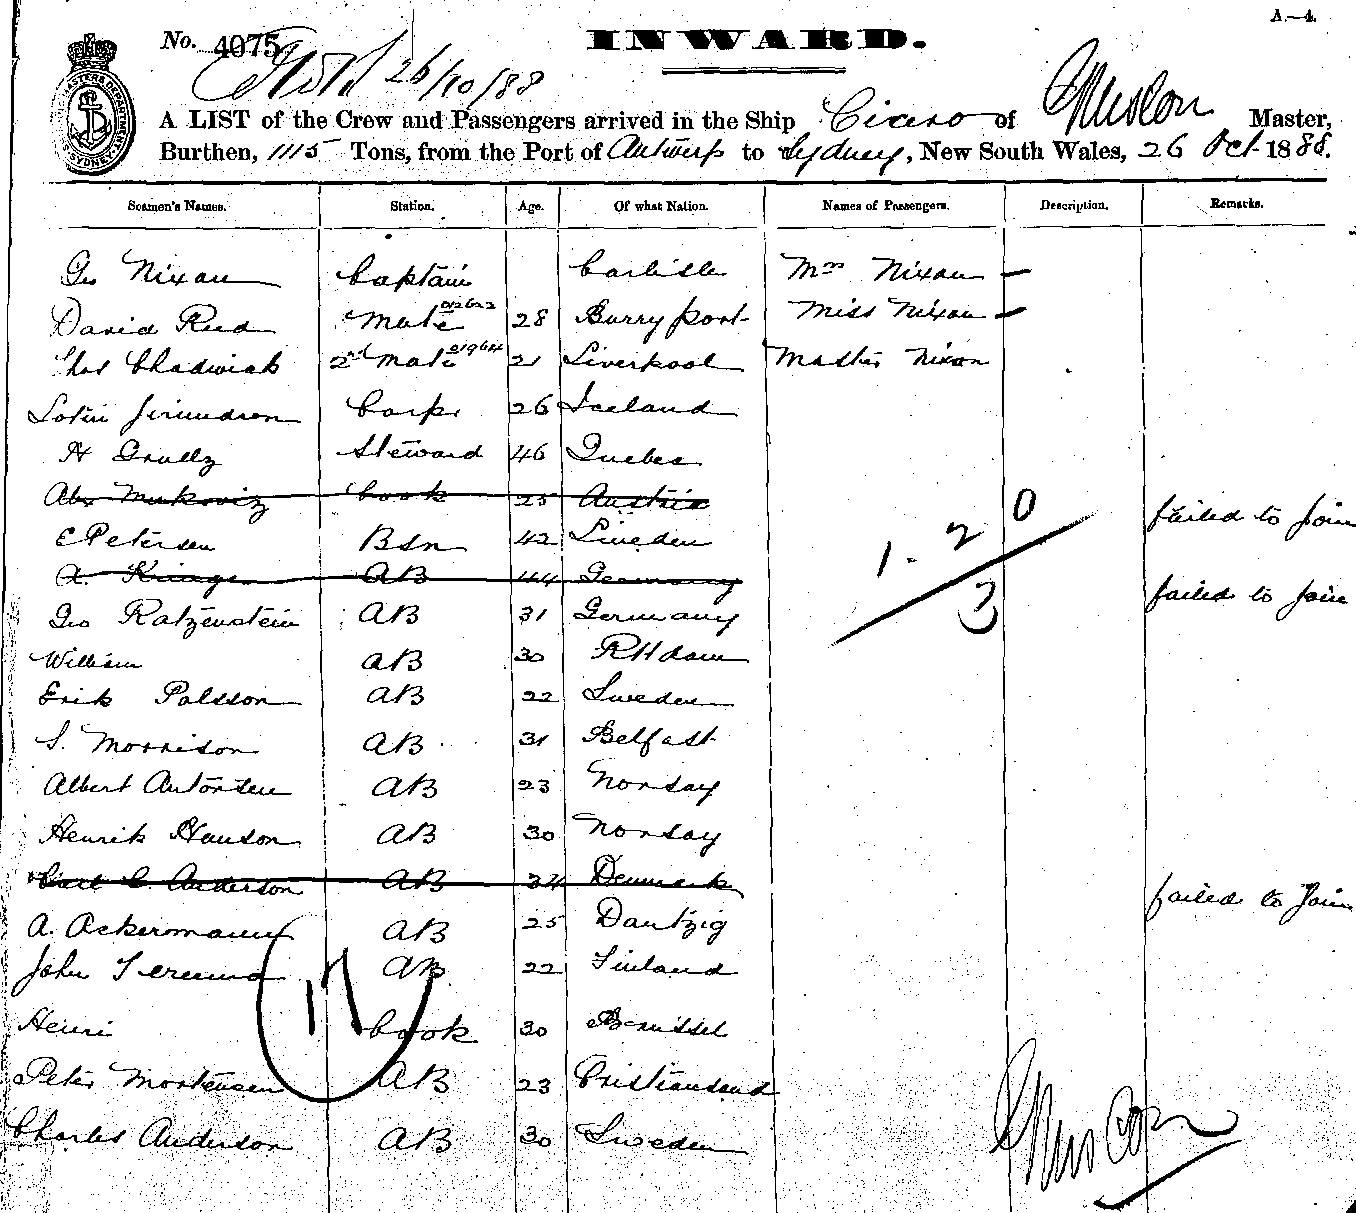 A.—4.
No. 4075 INWARD.
26/10/88
A LIST of the Crew and Passengers arrived in the Ship Cicero of Master,
Burthen, 1115 Tons, from the Port of Antwerp to Sydney, New South Wales, 26 Oct 1888.
Seamen's Names. Station. Age. Of what Nation. Names of Passengers. Description. Remarks.
Geo Nixon Captain Carlisle Mrs Nixon —
David Reed Mate 012622 28 Burry port Miss Nixon —
Thos Chadwick 2nd Mate 21 Liverpool Master Nixon
Carp. 26 Iceland
H Steward 46 Quebec
Alex Cook 25 Austria failed to join
E Petersen Bsn 42 Sweden
A. AB 44 Germany failed to join
Geo Ratzenstein AB 31 Germany
William AB 30 RHdam
Erik Palsson AB 22 Sweden
S. Morrison AB 31 Belfast
Albert Antonsen AB 23 Norway
Henrik Hanson AB 30 Norway
Carl C. Anderson AB 34 Denmark failed to join
A. Ackermann AB 25 Dantzig
John AB 22 Finland
Henri Cook 30 Brussel
Peter Mortensen AB 23 Cristiansand
Charles Anderson AB 30 Sweden
1 - 2 0
3
17